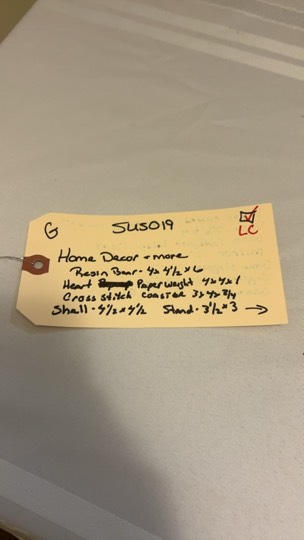 G SUS019 ☑
LC
Home Decor + more
Resin Bear - 4x 4 1/2 x 6
Heart Paperweight 4x4x1
Cross stitch coaster 3x4x 3/4
Shell - 4 1/2 x 4 1/2 Stand - 3 1/2 x 3 →